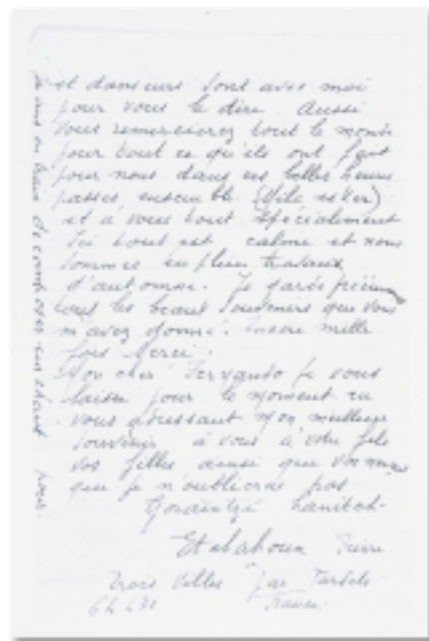 et danseurs sont avec moi
pour vous le dire aussi
vous remercierez tout le monde
pour tout ce qu'ils ont fait
pour nous dans ces belles heures
passés ensemble
et à vous tout spécialement
Ici tout est calme et nous
sommes en plein travaux
d'automne. Je garde
tous les beaux souvenirs que vous
m'avez donné. Encore mille
fois Merci.
Mon cher Fernando je vous
laisse pour le moment en
vous adressant mon meilleur
souvenir à vous à votre fils
vos filles ainsi que
que je n'oublierai pas
Etchahoun Pierre
Trois Villes par Tardets
France